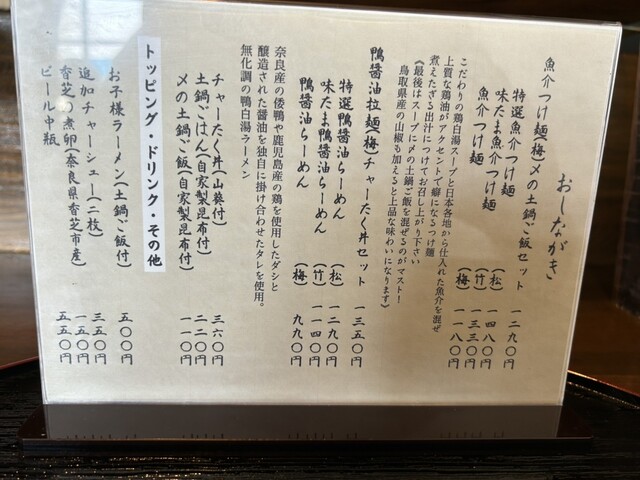 おしながき
魚介つけ麺(梅)〆の土鍋ご飯セット 一二九〇円
特選魚介つけ麺 (松) 一四八〇円
味たま魚介つけ麺 (竹) 一三三〇円
魚介つけ麺 (梅) 一一八〇円
こだわりの鶏白湯スープと日本各地から仕入れた魚介を混ぜ
上質な鶏油がアクセントで癖になるつけ麺
煮えたぎる出汁につけてお召し上がり下さい
(最後はスープに〆の土鍋ご飯を混ぜるのがマスト!
鳥取県産の山椒も加えると上品な味わいになります)
鴨醤油拉麺(梅)チャーたく丼セット 一三五〇円
特選鴨醤油らーめん (松) 一二九〇円
味たま鴨醤油らーめん (竹) 一一四〇円
鴨醤油らーめん (梅) 九九〇円
奈良産の倭鴨や鹿児島産の鶏を使用したダシと
醸造された醤油を独自に掛け合わせたタレを使用。
無化調の鴨白湯ラーメン
チャーたく丼(山葵付) 三六〇円
土鍋ごはん(自家製昆布付) 二二〇円
〆の土鍋ご飯(自家製昆布付) 一一〇円
トッピング・ドリンク・その他
お子様ラーメン(土鍋ご飯付) 五〇〇円
追加チャーシュー(二枚) 三五〇円
香芝の煮卵(奈良県香芝市産) 一五〇円
ビール中瓶 五五〇円